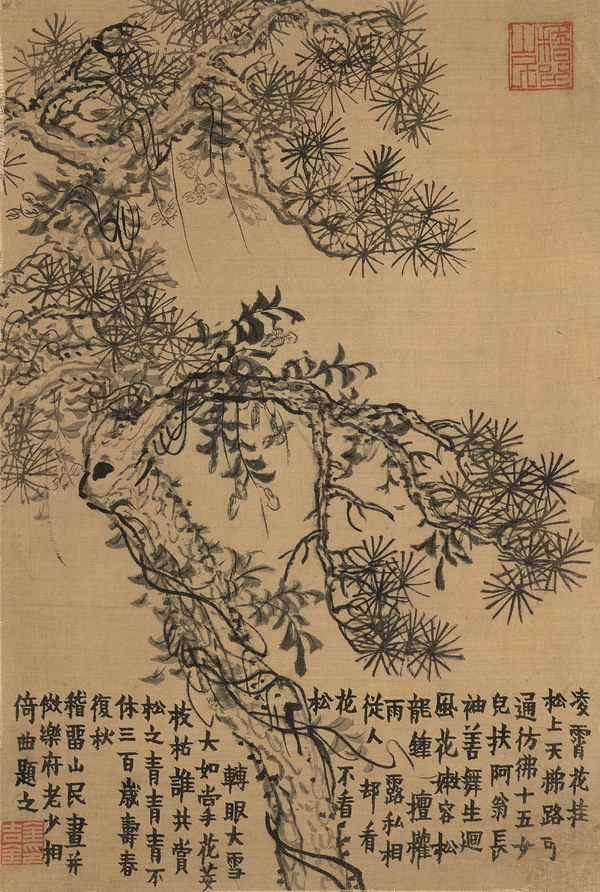 稽留山民
凌霄花挂
松上天梯路可
通彷彿十五女
兒扶阿翁長
袖善舞生迴
風花嫩容松
龍鍾擅權
雨露私相
從人却看
花不看
松
轉眼大雪
大如掌花萎
枝枯誰共賞
松之青青青不
休三百歲壽春
復秋
稽畱山民畫并
倣樂府老少相
倚曲題之